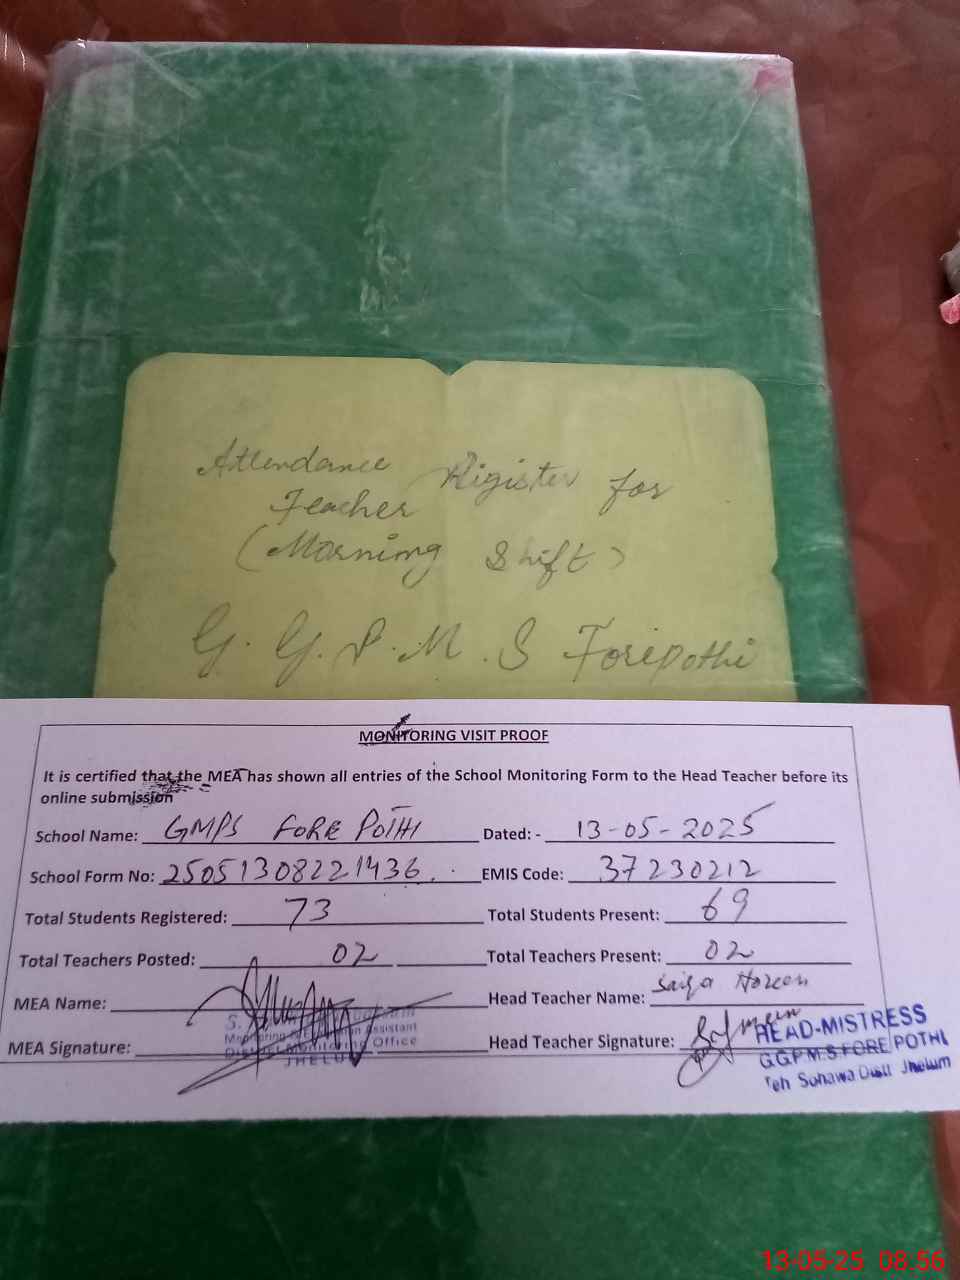 Attendance Rigister for
Teacher
(Morning Shift)
G. G. P. M. S Forepothi
MONITORING VISIT PROOF
It is certified that the MEA has shown all entries of the School Monitoring Form to the Head Teacher before its
online submission
School Name: GMPS FORE POTHI Dated: - 13-05-2025
School Form No: 25051308221436 EMIS Code: 37230212
Total Students Registered: 73 Total Students Present: 69
Total Teachers Posted: 02 Total Teachers Present: 02
MEA Name: Head Teacher Name:
MEA Signature: Head Teacher Signature:
S.
Monitoring Assistant
District Monitoring Office
JHELUM
HEAD-MISTRESS
G.G.P.M.S FORE POTHI
Teh Sohawa Distt Jhelum
13-05-25 08.56